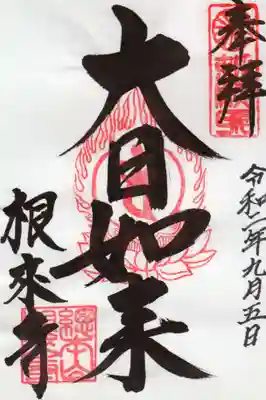 奉拝
令和二年九月五日
大日如来
根來寺